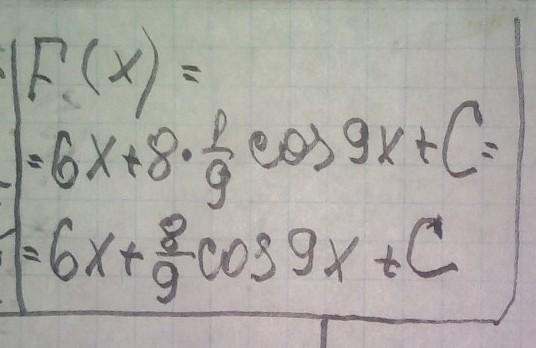 F(x) =
= 6x + 8 · 1/9 cos 9x + C =
= 6x + 8/9 cos 9x + C